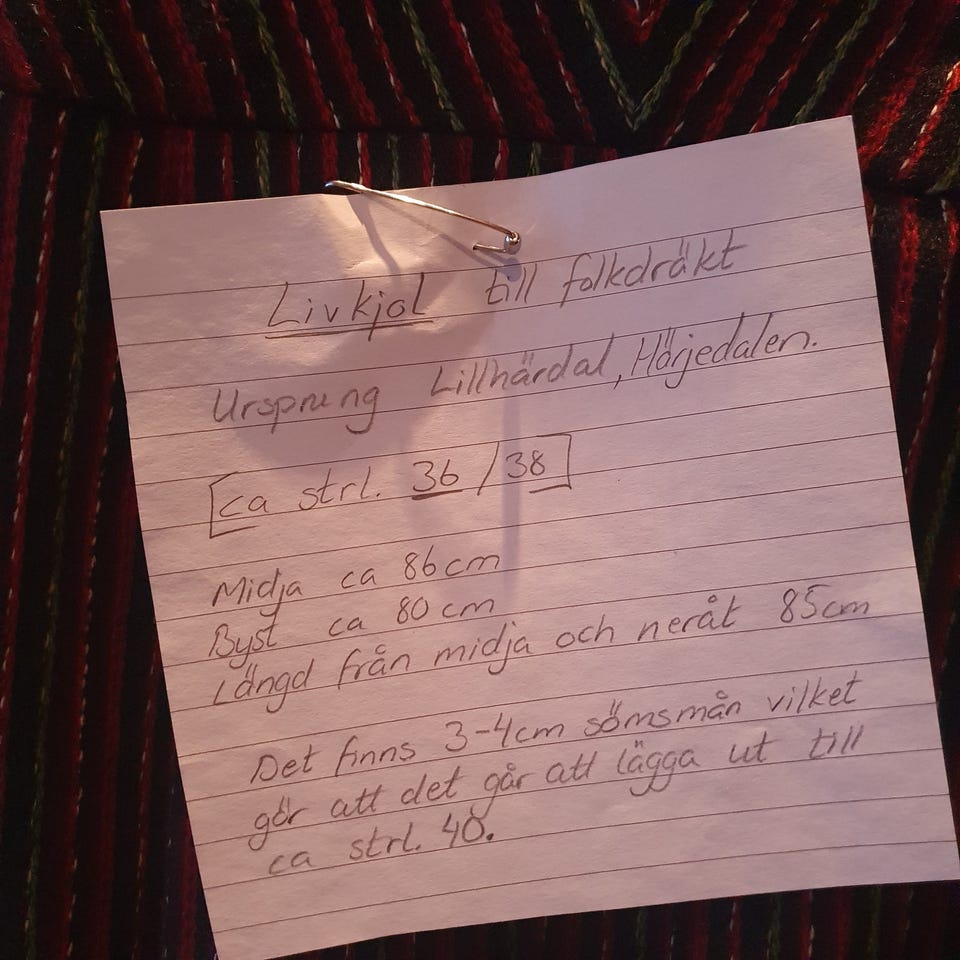 Livkjol till folkdräkt
Ursprung Lillhärdal, Härjedalen.
ca strl. 36/38
Midja ca 86cm
Byst ca 80cm
Längd från midja och neråt 85cm
Det finns 3-4cm sömsmån vilket
gör att det går att lägga ut till
ca strl. 40.